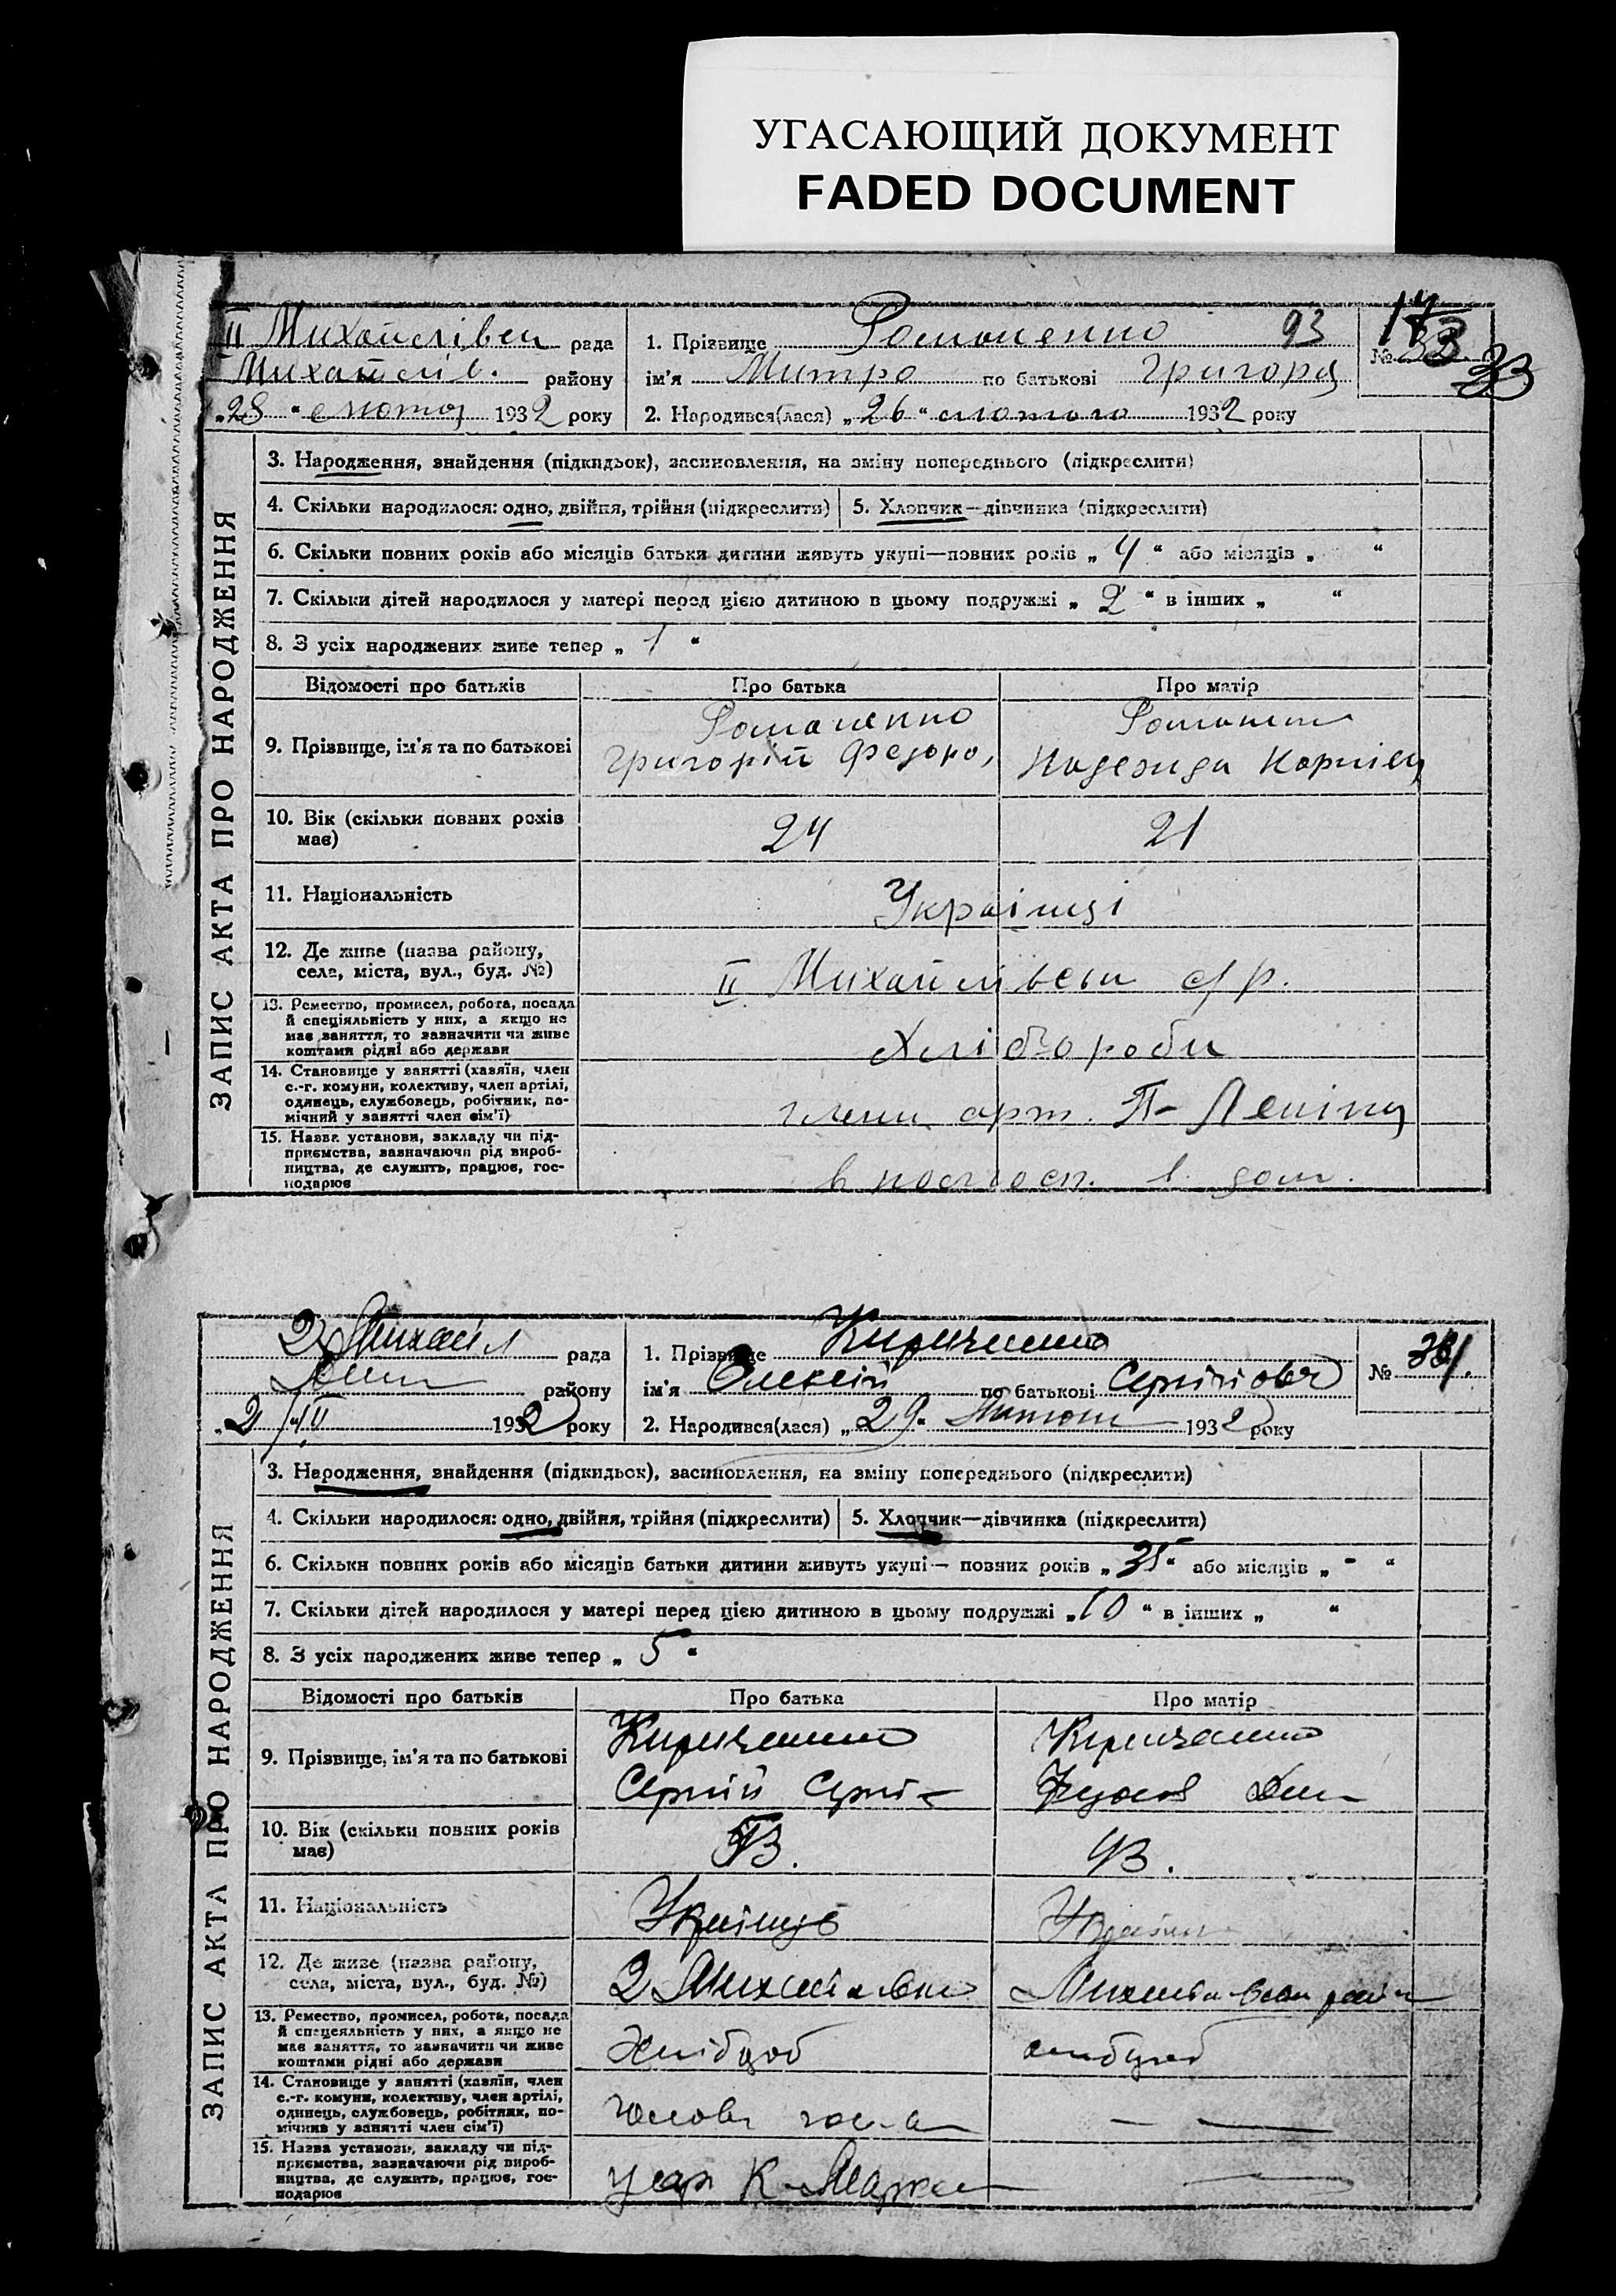 УГАСАЮЩИЙ ДОКУМЕНТ
FADED DOCUMENT
ІІ Михайлівськ рада
Михайлів. району
„28“ лютого 1932 року
1. Прізвище Романенко 93
ім'я Митро по батькові Григоров
2. Народився(лася) „26“ лютого 1932 року
№ 33
33
ЗАПИС АКТА ПРО НАРОДЖЕННЯ
3. Народження, знайдення (підкидьок), засиновлення, на зміну попереднього (підкреслити)
4. Скільки народилося: одно, двійня, трійня (підкреслити) 5. Хлопчик—дівчинка (підкреслити)
6. Скільки повних років або місяців батьки дитини живуть укупі—повних років „4“ або місяців „ “
7. Скільки дітей народилося у матері перед цією дитиною в цьому подружжі „2“ в інших „ “
8. З усіх народжених живе тепер „1“
Відомості про батьків Про батька Про матір
9. Прізвище, ім'я та по батькові
Романенко
Григорій Федоро,
Надежда
10. Вік (скільки повних років
має)
24 21
11. Національність
Українці
12. Де живе (назва району,
села, міста, вул., буд. №)
ІІ Михайлівськ с/р.
13. Ремество, промисел, робота, посада
й спеціяльність у них, а якщо не
має заняття, то зазначити чи живе
коштами рідні або держави
Хлібороби
14. Становище у занятті (хазяїн, член
с.-г. комуни, колективу, член артілі,
одинець, службовець, робітник, по-
мічний у занятті член сім'ї)
члени арт. Леніна
15. Назва установи, закладу чи під-
приємства, зазначаючи рід вироб-
ництва, де служить, працює, гос-
подарює
2 Михайл рада
району
1932 року
1. Прізвище Кириченко
ім'я Олексій по батькові Сергійович
2. Народився(лася) „29“ 1932 року
№
ЗАПИС АКТА ПРО НАРОДЖЕННЯ
3. Народження, знайдення (підкидьок), засиновлення, на зміну попереднього (підкреслити)
4. Скільки народилося: одно, двійня, трійня (підкреслити) 5. Хлопчик—дівчинка (підкреслити)
6. Скільки повних років або місяців батьки дитини живуть укупі — повних років „ “ або місяців „-“
7. Скільки дітей народилося у матері перед цією дитиною в цьому подружжі „10“ в інших „ “
8. З усіх народжених живе тепер „5“
Відомості про батьків Про батька Про матір
9. Прізвище, ім'я та по батькові
Кириченко Кириченко
Сергій Сергі
10. Вік (скільки повних років
має)
43.
11. Національність
Українці
12. Де живе (назва району,
села, міста, вул., буд. №)
2 Михайлівки
13. Ремество, промисел, робота, посада
й спецеяльність у них, а якщо не
має заняття, то зазначити чи живе
коштами рідні або держави
Хлібороб
14. Становище у занятті (хазяїн, член
с.-г. комуни, колективу, член артілі,
одинець, службовець, робітник, по-
мічник у занятті член сім'ї)
15. Назва установи, закладу чи під-
приємства, зазначаючи рід вироб-
ництва, де служить, працює, гос-
подарює
К-Маркса